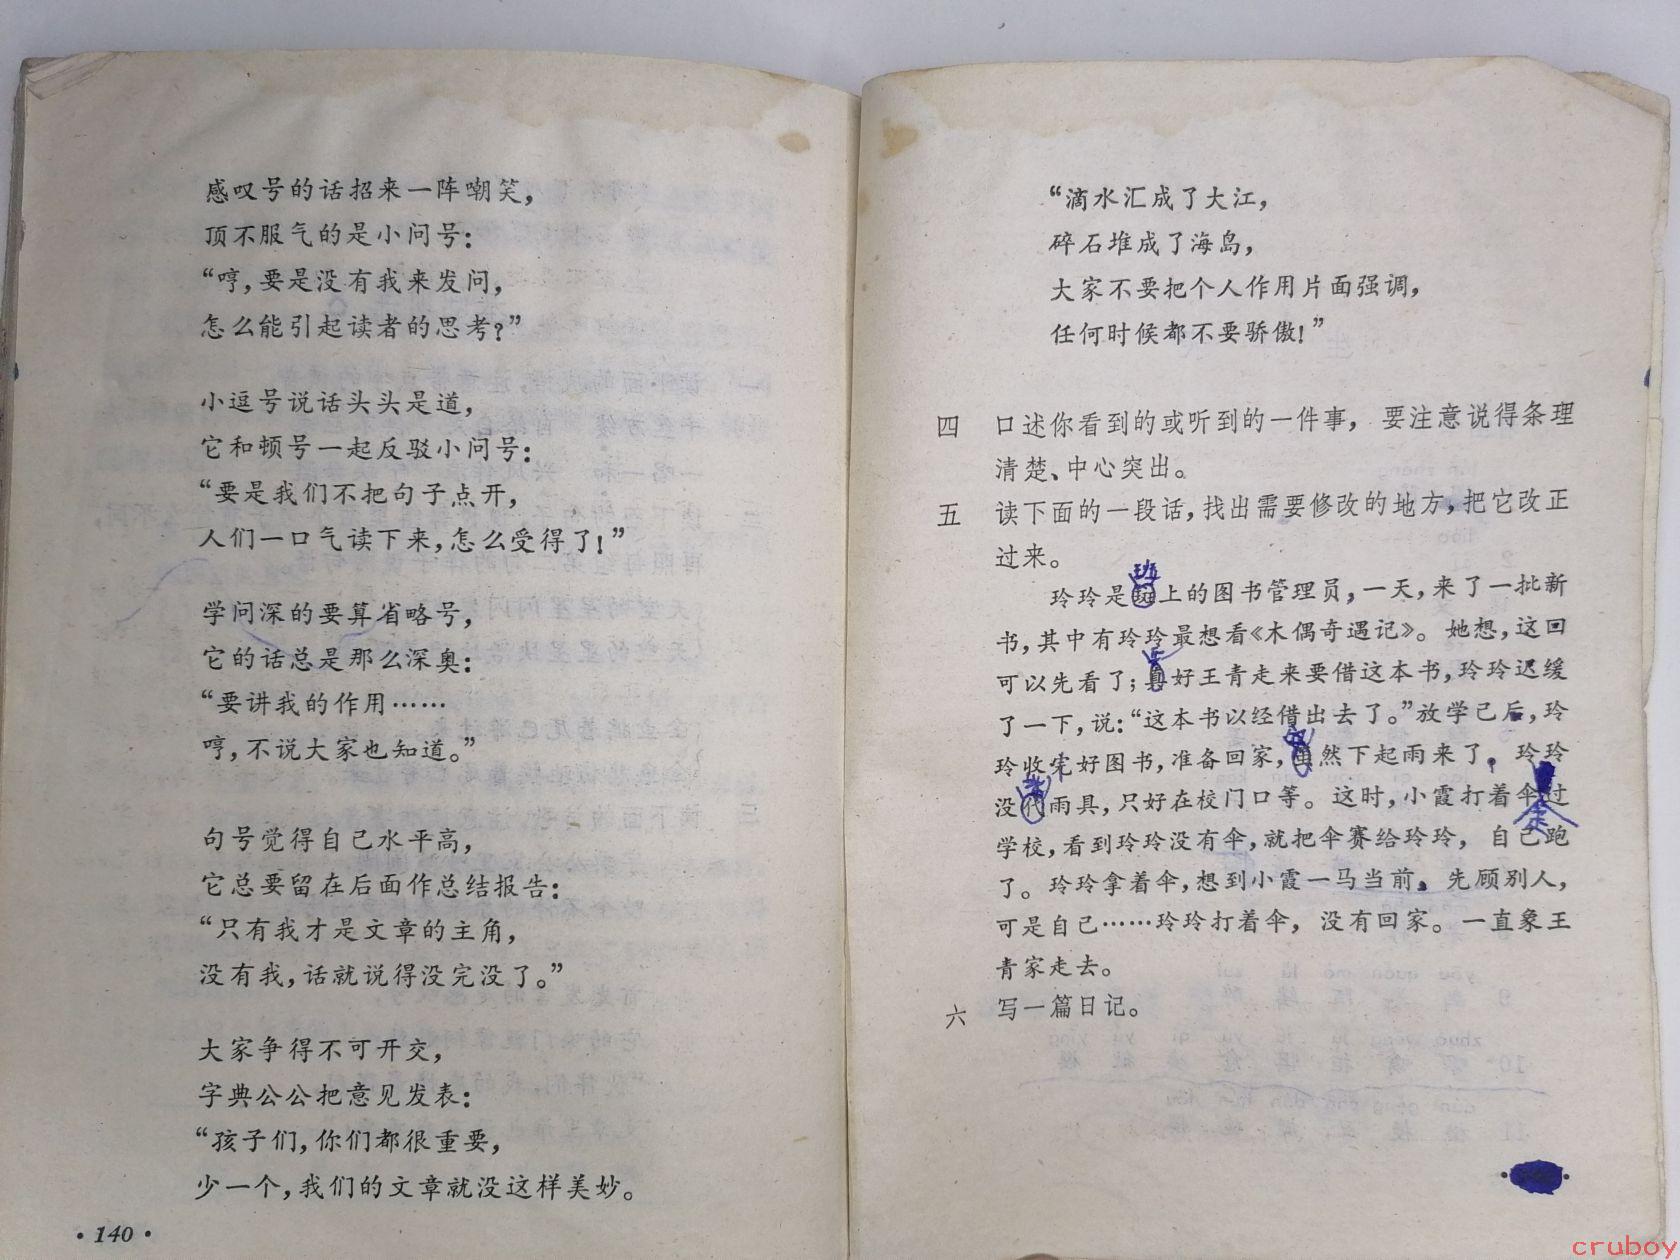 感叹号的话招来一阵嘲笑，
顶不服气的是小问号：
“哼，要是没有我来发问，
怎么能引起读者的思考？”
小逗号说话头头是道，
它和顿号一起反驳小问号：
“要是我们不把句子点开，
人们一口气读下来，怎么受得了！”
学问深的要算省略号，
它的话总是那么深奥：
“要讲我的作用……
哼，不说大家也知道。”
句号觉得自己水平高，
它总要留在后面作总结报告：
“只有我才是文章的主角，
没有我，话就说得没完没了。”
大家争得不可开交，
字典公公把意见发表：
“孩子们，你们都很重要，
少一个，我们的文章就没这样美妙。
·140·
“滴水汇成了大江，
碎石堆成了海岛，
大家不要把个人作用片面强调，
任何时候都不要骄傲！”
四 口述你看到的或听到的一件事，要注意说得条理
清楚、中心突出。
五 读下面的一段话，找出需要修改的地方，把它改正
过来。
班
玲玲是斑上的图书管理员，一天，来了一批新
书，其中有玲玲最想看《木偶奇遇记》。她想，这回
可以先看了；真好王青走来要借这本书，玲玲迟缓
了一下，说：“这本书以经借出去了。”放学已后，玲
玲收完好图书，准备回家，虽然下起雨来了。玲玲
没代雨具，只好在校门口等。这时，小霞打着伞过
走
学校，看到玲玲没有伞，就把伞赛给玲玲，自己跑
了。玲玲拿着伞，想到小霞一马当前，先顾别人，
可是自己……玲玲打着伞，没有回家。一直象王
青家走去。
六 写一篇日记。
cruboy